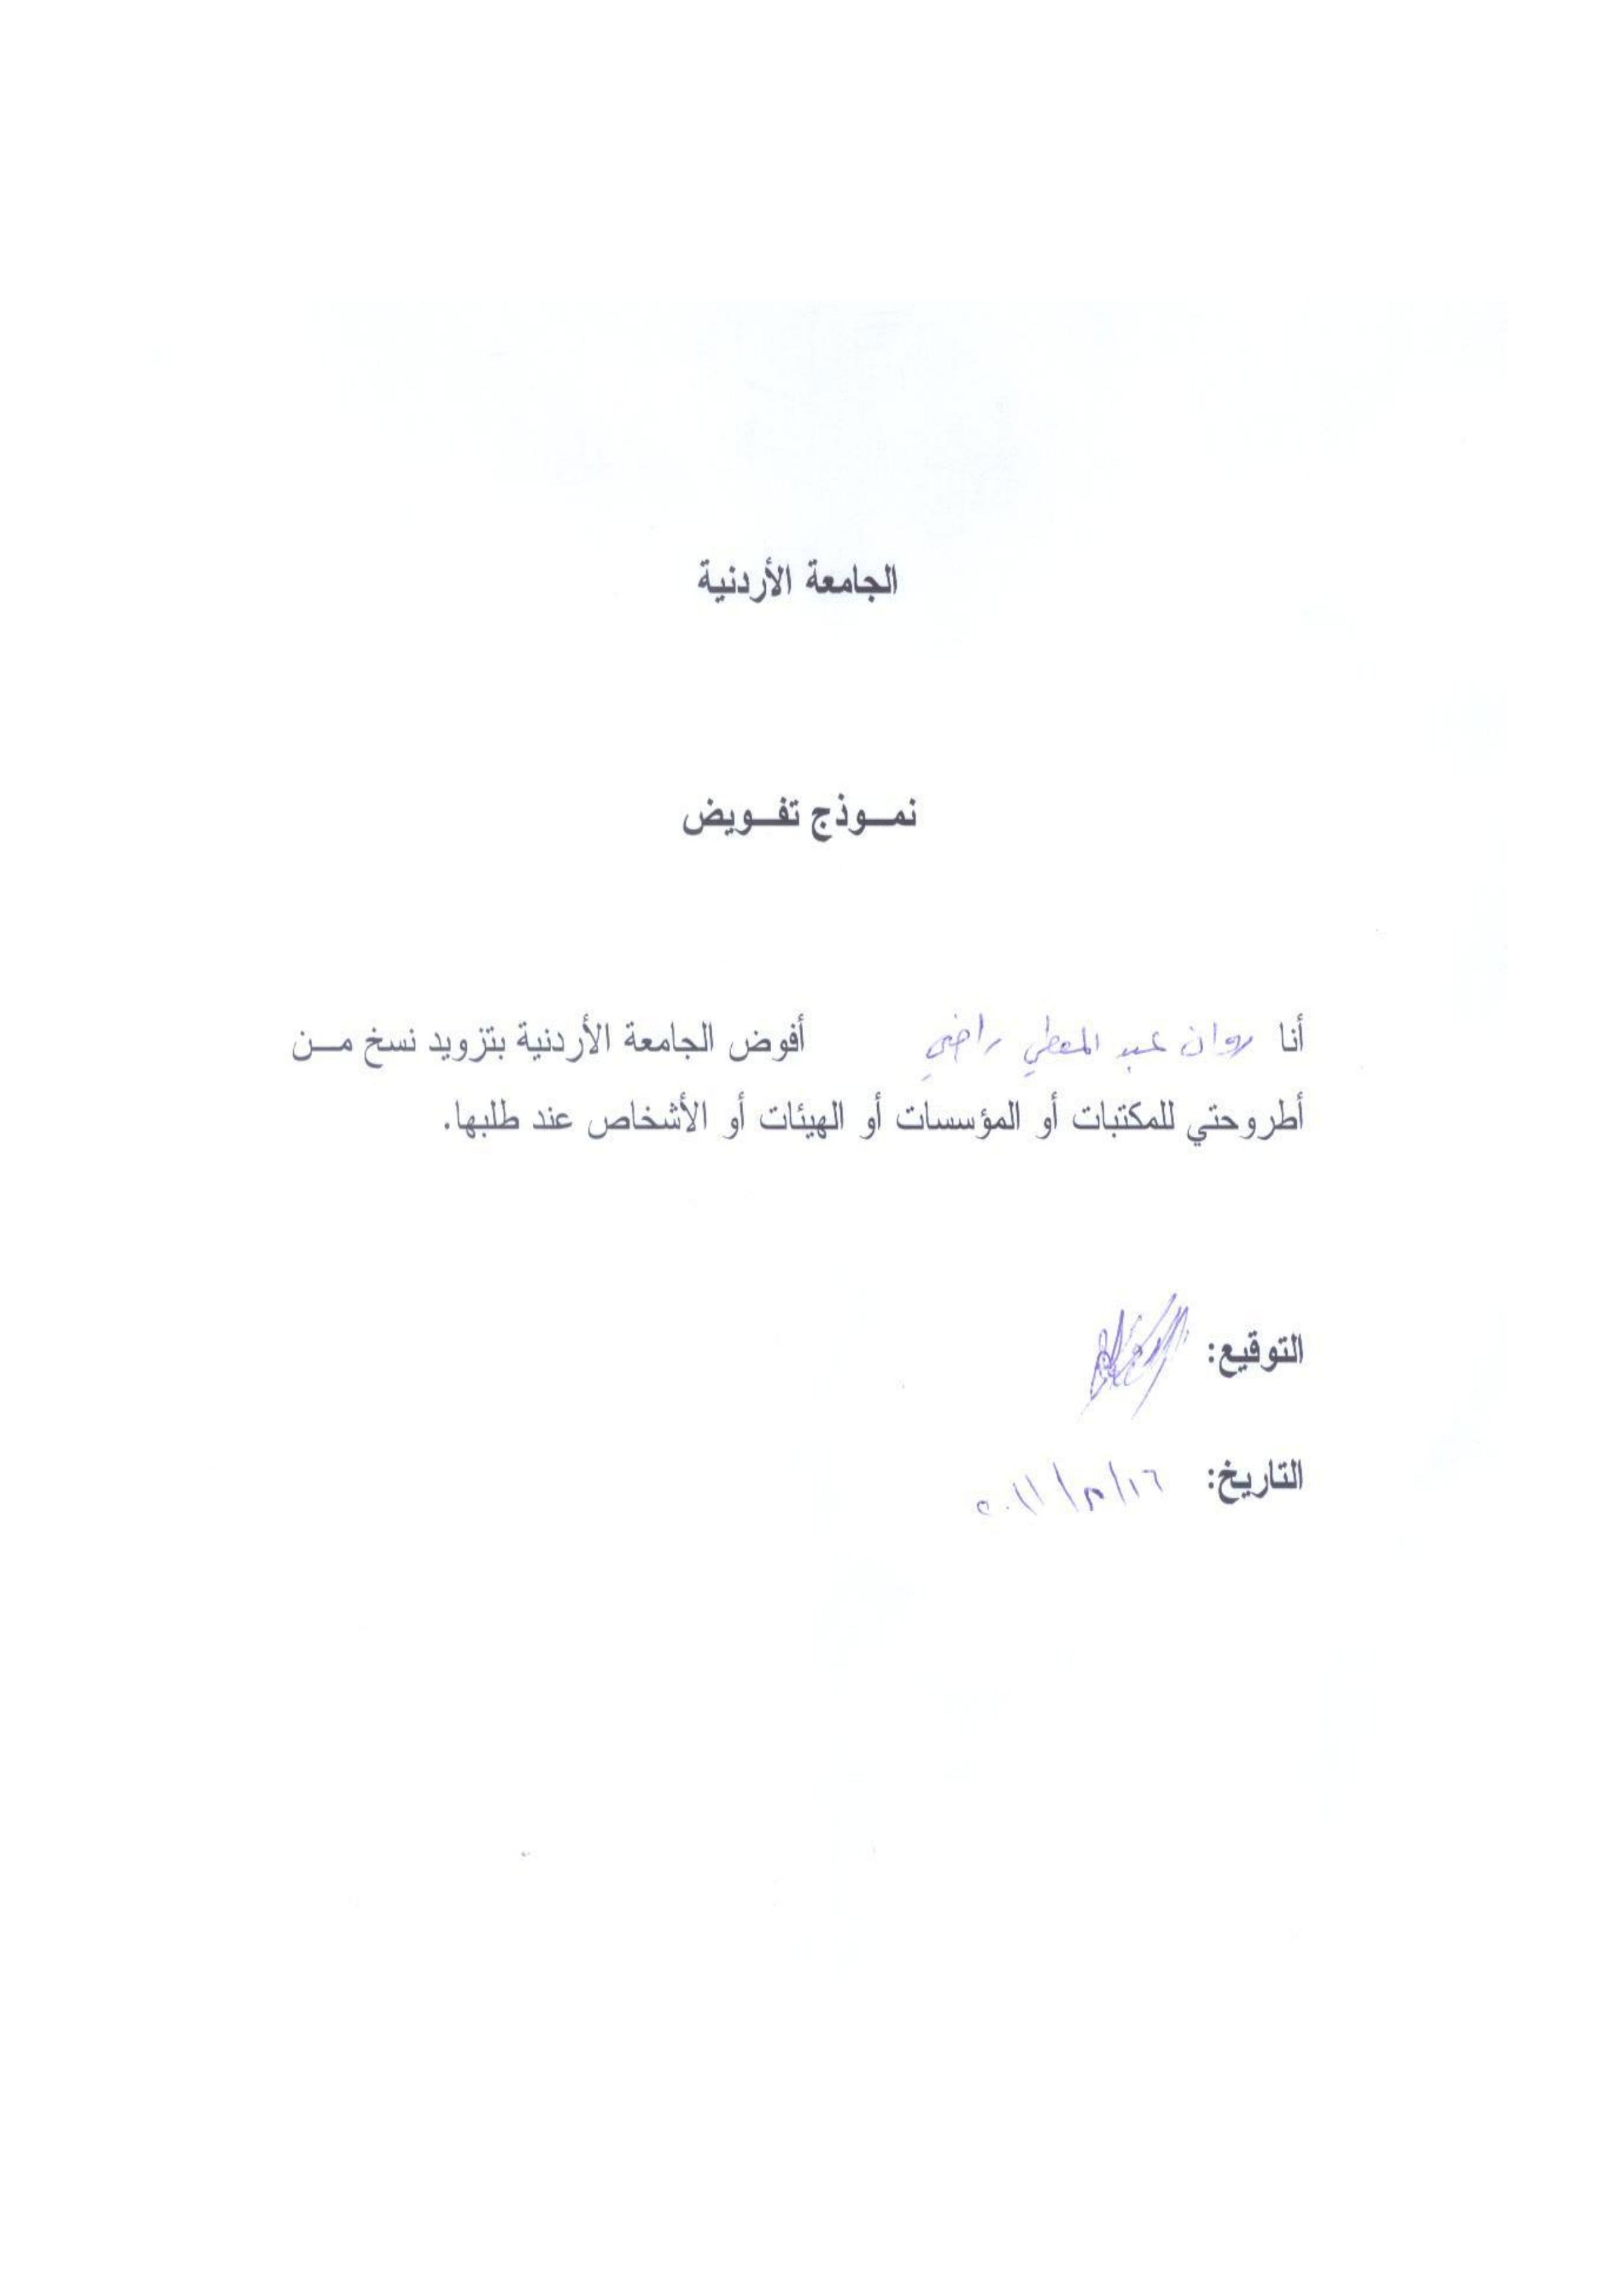 الجامعة الأردنية
نمــوذج تفــويض
أنا روان عبد المعطي راضي أفوض الجامعة الأردنية بتزويد نسخ مــن
أطروحتي للمكتبات أو المؤسسات أو الهيئات أو الأشخاص عند طلبها.
التوقيع:
التاريخ: ١٦/ /٢٠١١